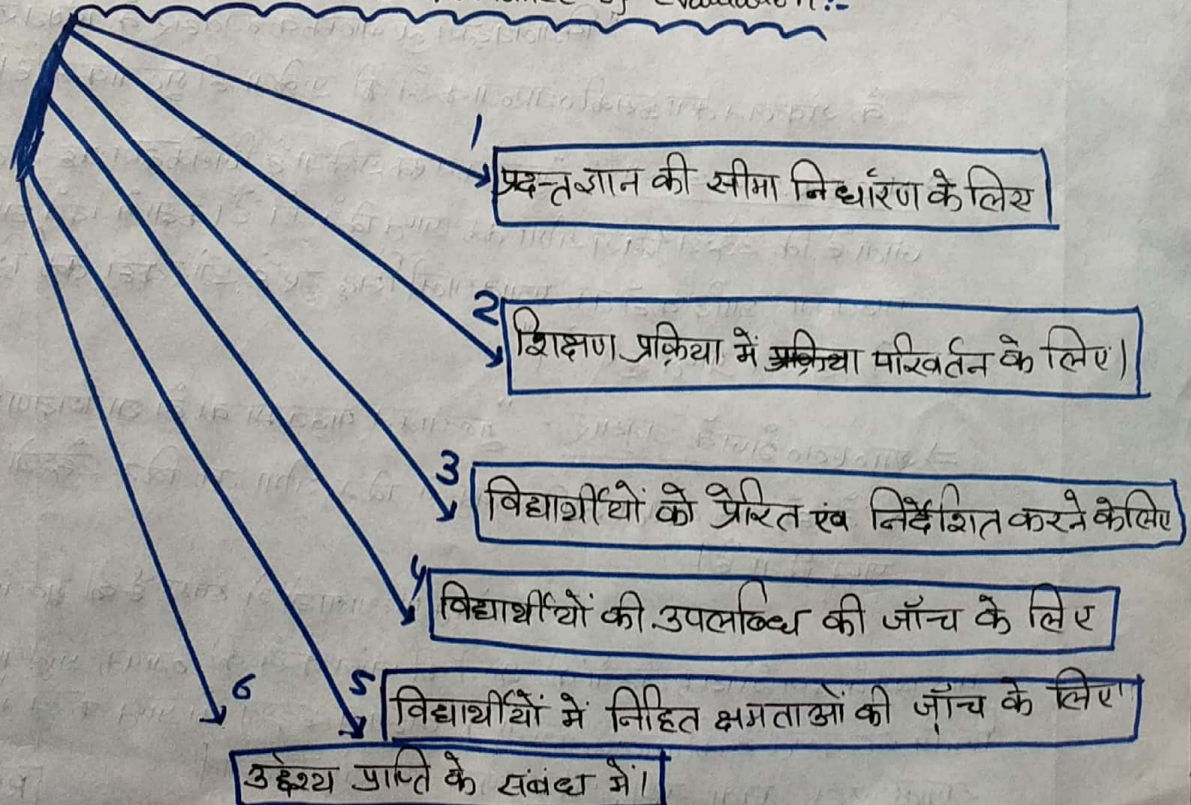 of Evaluation:-
1
प्रदत्त ज्ञान की सीमा निर्धारण के लिए
2
शिक्षण प्रक्रिया में परिवर्तन के लिए।
3
विद्यार्थीयों को प्रेरित एंव निर्देशित करने के लिए
4
विद्यार्थीयों की उपलब्धि की जाँच के लिए
5
विद्यार्थीयों में निहित क्षमताओं की जाँच के लिए
6
उद्देश्य प्राप्ति के संबंध में।